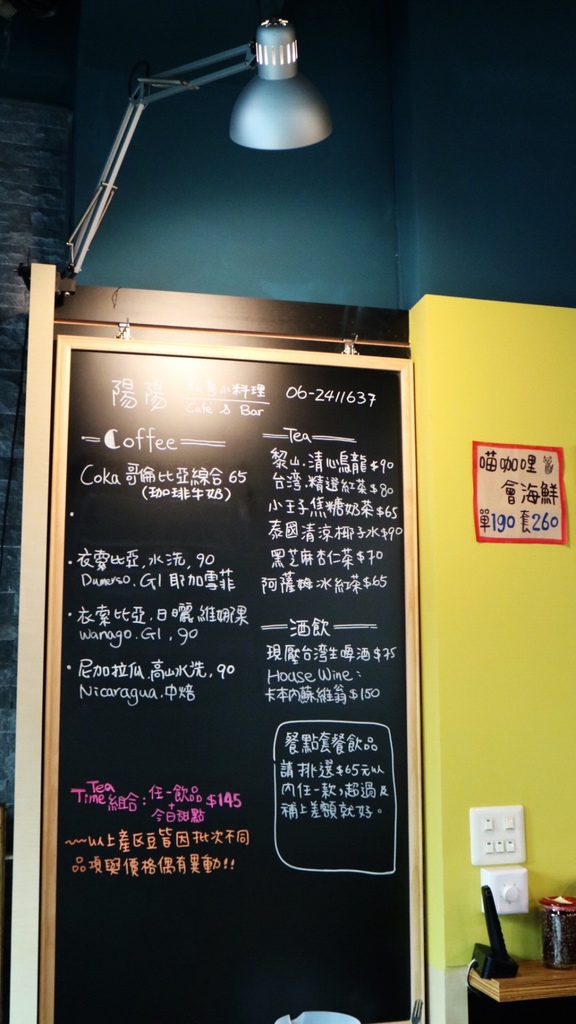 陽陽 小料理 06-2411637
Cafe & Bar
Coffee
Coka 哥倫比亞綜合 65
(珈琲牛奶)
衣索比亞.水洗.90
Dumerso.G1 耶加雪菲
衣索比亞.日曬.維娜果
Wanago.G1,90
尼加拉瓜.高山水洗,90
Nicaragua.中焙
Tea
黎山.清心烏龍$90
台湾.精選紅茶$80
小王子焦糖奶茶$65
泰國清涼椰子水$90
黑芝麻杏仁茶$70
阿薩姆冰紅茶$65
酒飲
現壓台湾生啤酒$75
House Wine:
卡本內蘇維翁$150
餐點套餐飲品
請挑選$65元以
內任一款,超過
補上差額就好。
Tea
Time組合:任一飲品 $145
+
今日甜點
~以上產区豆皆因批次不同
品項與價格偶有異動!!
喵咖哩
會海鮮
單190 套260